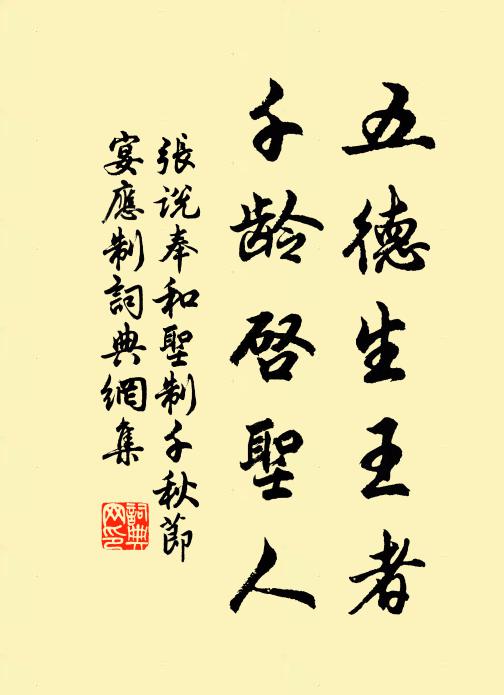 五德生王者
千龄启聖人
張说奉和聖制千秋節
宴應制詞典網集
詞典
网印